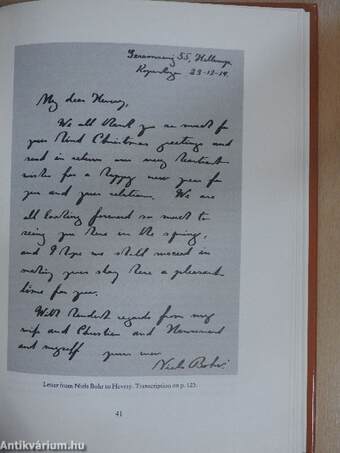 55, Hellerup
23-12-19.
My dear Hevesy,
We all thank you so much for
your kind Christmas greeting and
send in return our very heartiest
wishes for a happy new year for
you and your relations. We are
all looking forward so much to
seeing you here in the spring,
and I hope we shall succeed in
making your stay here a pleasant
time for you.
With kindest regards from my
wife and Christian and
and myself yours ever
Niels Bohr.
Letter from Niels Bohr to Hevesy. Transcription on p. 123.
41
Antikvárium.hu